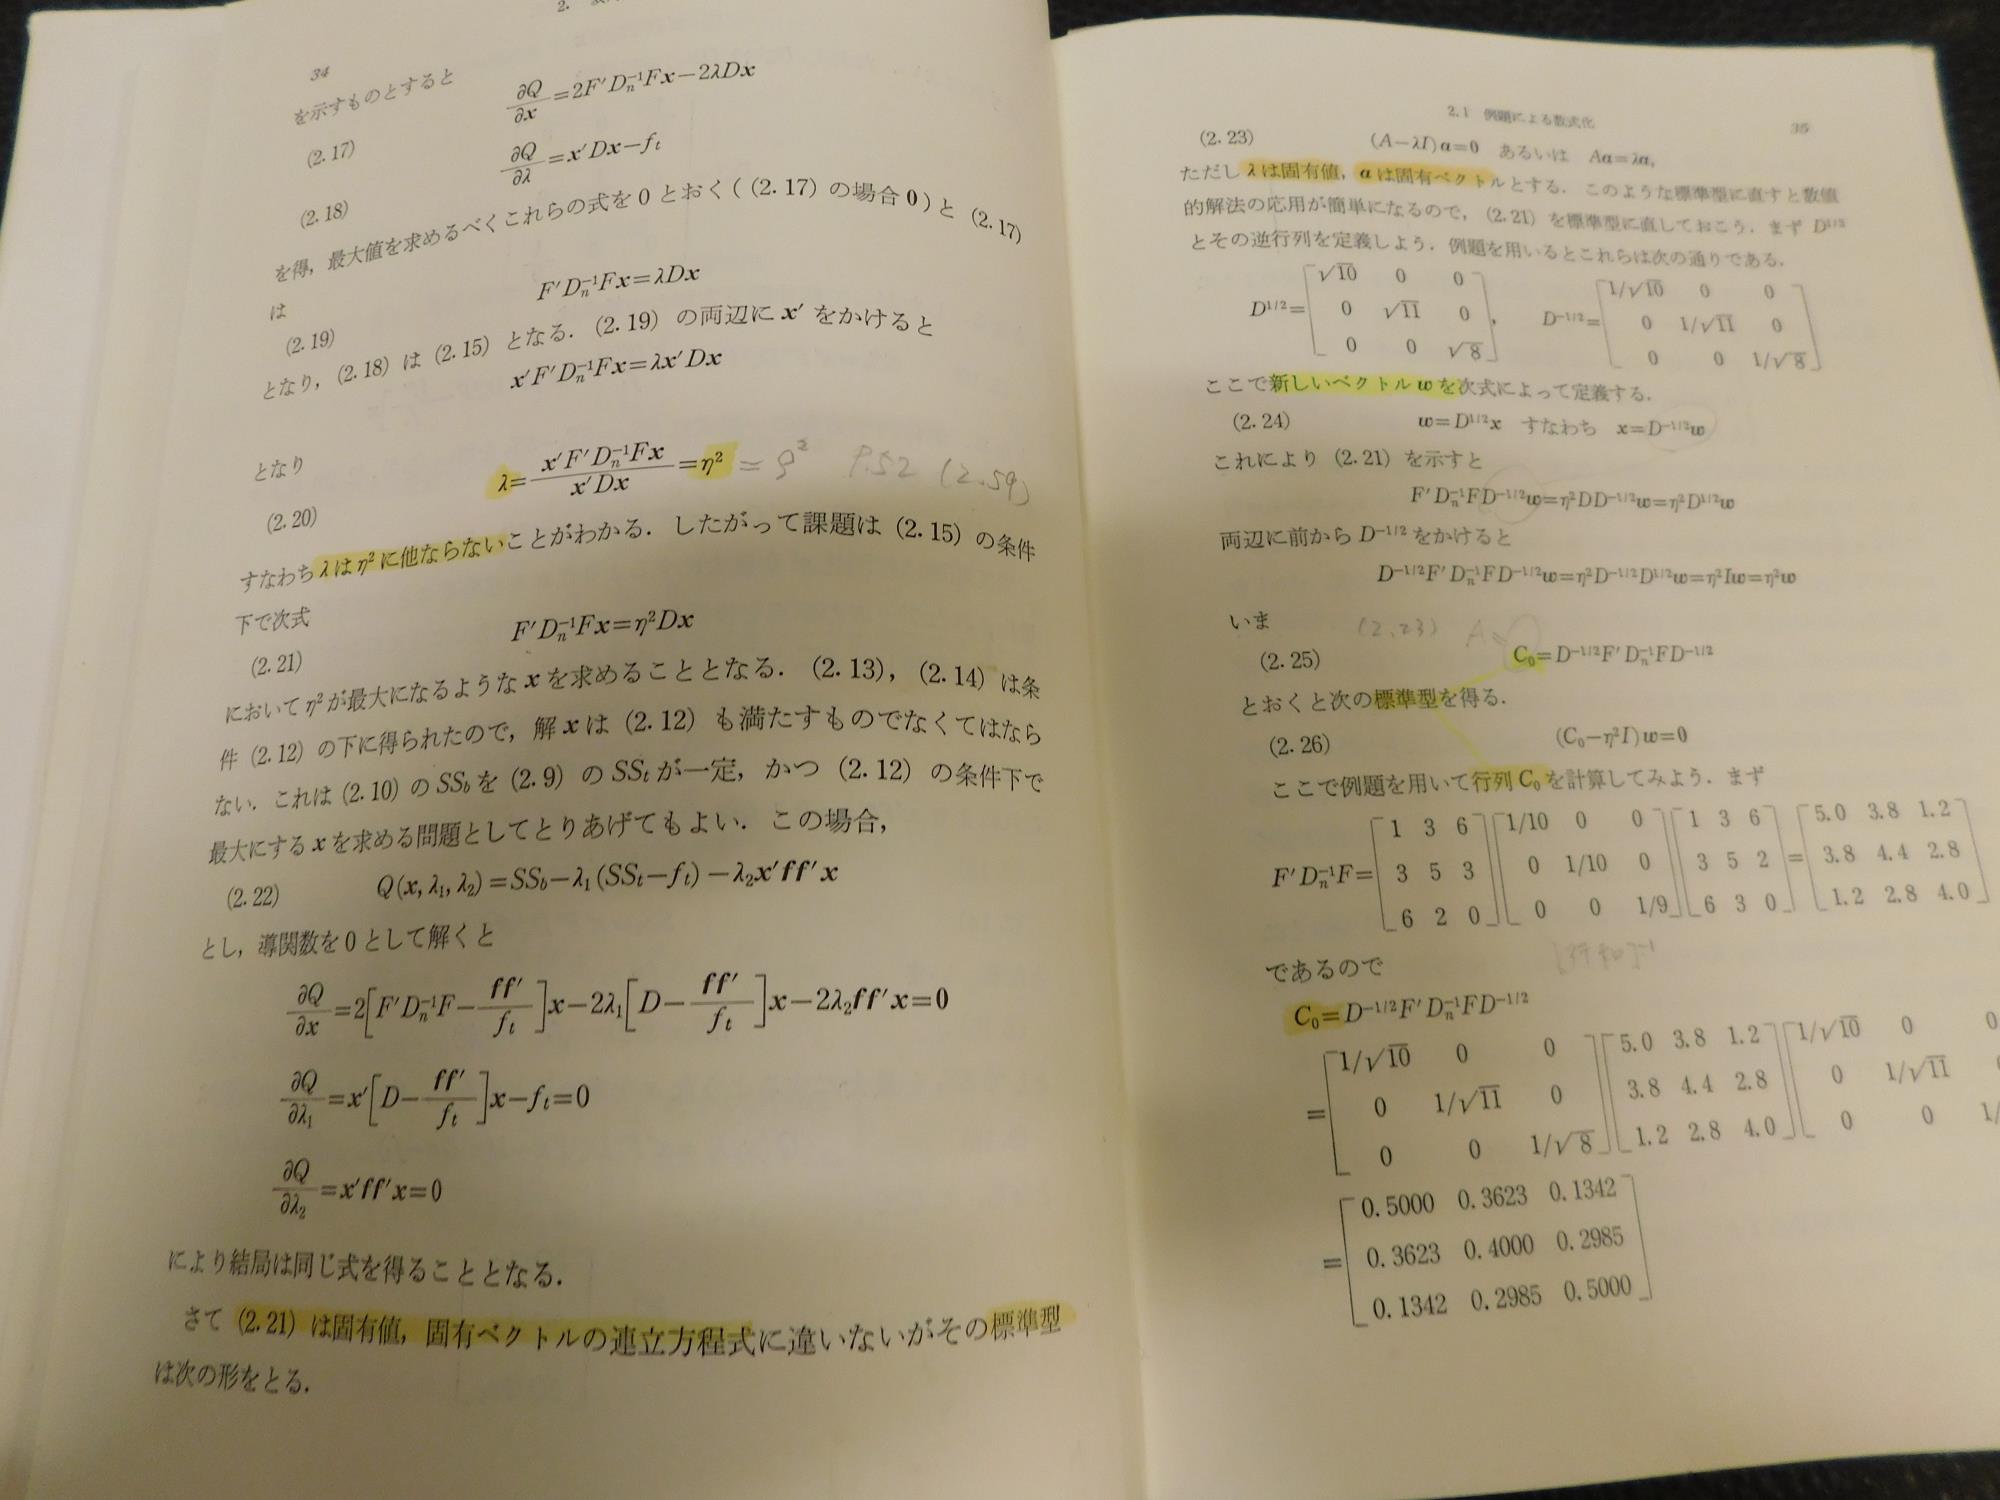 34
を示すものとすると
(2.17) ∂Q/∂x=2F′Dₙ⁻¹Fx−2λDx
(2.18) ∂Q/∂λ=x′Dx−fₜ
を得,最大値を求めるべくこれらの式を0とおく((2.17)の場合0)と(2.17)
は
(2.19) F′Dₙ⁻¹Fx=λDx
となり,(2.18)は(2.15)となる.(2.19)の両辺にx′をかけると
x′F′Dₙ⁻¹Fx=λx′Dx
となり
(2.20) λ=x′F′Dₙ⁻¹Fx/x′Dx=η² = ρ² P.52 (2.59)
すなわちλはη²に他ならないことがわかる.したがって課題は(2.15)の条件
下で次式
(2.21) F′Dₙ⁻¹Fx=η²Dx
においてη²が最大になるようなxを求めることとなる.(2.13),(2.14)は条
件(2.12)の下に得られたので,解xは(2.12)も満たすものでなくてはなら
ない.これは(2.10)のSS_bを(2.9)のSSₜが一定,かつ(2.12)の条件下で
最大にするxを求める問題としてとりあげてもよい.この場合,
(2.22) Q(x, λ₁, λ₂)=SS_b−λ₁(SSₜ−fₜ)−λ₂x′ff′x
とし,導関数を0として解くと
∂Q/∂x=2[F′Dₙ⁻¹F−ff′/fₜ]x−2λ₁[D−ff′/fₜ]x−2λ₂ff′x=0
∂Q/∂λ₁=x′[D−ff′/fₜ]x−fₜ=0
∂Q/∂λ₂=x′ff′x=0
により結局は同じ式を得ることとなる.
さて(2.21)は固有値,固有ベクトルの連立方程式に違いないがその標準型
は次の形をとる.
2.1 例題による数式化 35
(2.23) (A−λI)a=0 あるいは Aa=λa,
ただしλは固有値,aは固有ベクトルとする.このような標準型に直すと数値
的解法の応用が簡単になるので,(2.21)を標準型に直しておこう.まずD¹ᐟ²
とその逆行列を定義しよう.例題を用いるとこれらは次の通りである.
D¹ᐟ²=[√10 0 0 , D⁻¹ᐟ²=[1/√10 0 0
0 √11 0 0 1/√11 0
0 0 √8] 0 0 1/√8]
ここで新しいベクトルwを次式によって定義する.
(2.24) w=D¹ᐟ²x すなわち x=D⁻¹ᐟ²w
これにより(2.21)を示すと
F′Dₙ⁻¹FD⁻¹ᐟ²w=η²DD⁻¹ᐟ²w=η²D¹ᐟ²w
両辺に前からD⁻¹ᐟ²をかけると
D⁻¹ᐟ²F′Dₙ⁻¹FD⁻¹ᐟ²w=η²D⁻¹ᐟ²D¹ᐟ²w=η²Iw=η²w
いま (2.23) A=
(2.25) C₀=D⁻¹ᐟ²F′Dₙ⁻¹FD⁻¹ᐟ²
とおくと次の標準型を得る.
(2.26) (C₀−η²I)w=0
ここで例題を用いて行列C₀を計算してみよう.まず
F′Dₙ⁻¹F=[1 3 6 [1/10 0 0 [1 3 6 = [5.0 3.8 1.2
3 5 3 0 1/10 0 3 5 2 3.8 4.4 2.8
6 2 0] 0 0 1/9] 6 3 0] 1.2 2.8 4.0]
であるので
C₀=D⁻¹ᐟ²F′Dₙ⁻¹FD⁻¹ᐟ²
=[1/√10 0 0 [5.0 3.8 1.2 [1/√10 0 0
0 1/√11 0 3.8 4.4 2.8 0 1/√11
0 0 1/√8] 1.2 2.8 4.0] 0 0 1/
=[0.5000 0.3623 0.1342
0.3623 0.4000 0.2985
0.1342 0.2985 0.5000]